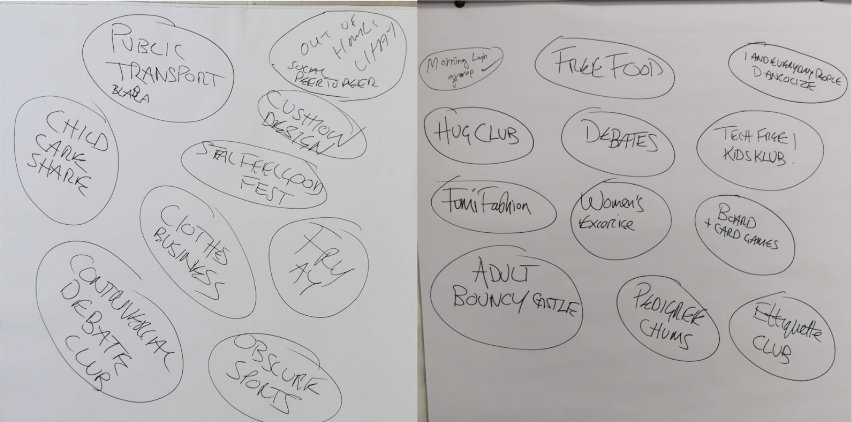 PUBLIC
TRANSPORT
BLABLA
OUT OF
HOURS
SOCIAL
PEER TO PEER
CUSHION
DESIGN
CHILD
CARE
SHARE
FEELGOOD
FEST
CLOTHES
BUSINESS
CONTROVERCIAL
DEBATE
CLUB
OBSCURE
SPORTS
Morning
group
FREE FOOD
I AND EVERYDAY PEOPLE
DANCOCIZE
HUG CLUB
DEBATES
TECH FREE!
KIDS KLUB!
Fashion
Women's
Excercise
BOARD
+ CARD GAMES
ADULT
BOUNCY CASTLE
PEDIGREE
CHUMS
Ettiquette
CLUB